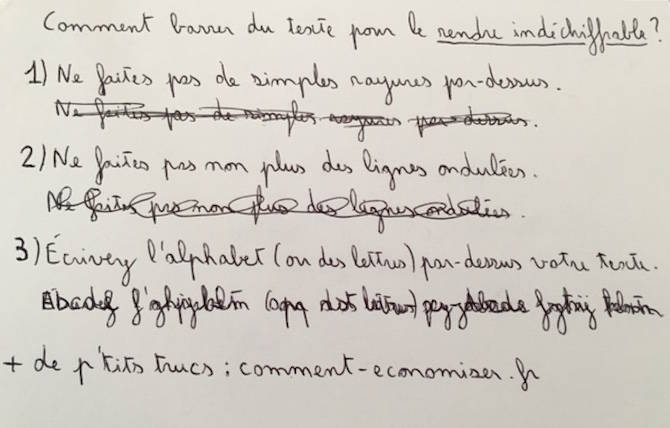 Comment barrer du texte pour le rendre indéchiffrable ?
1) Ne faites pas de simples rayures par-dessus.
Ne faites pas de simples rayures par-dessus.
2) Ne faites pas non plus des lignes ondulées.
Ne faites pas non plus des lignes ondulées.
3) Écrivez l'alphabet (ou des lettres) par-dessus votre texte.
+ de p'tits trucs : comment-economiser.fr